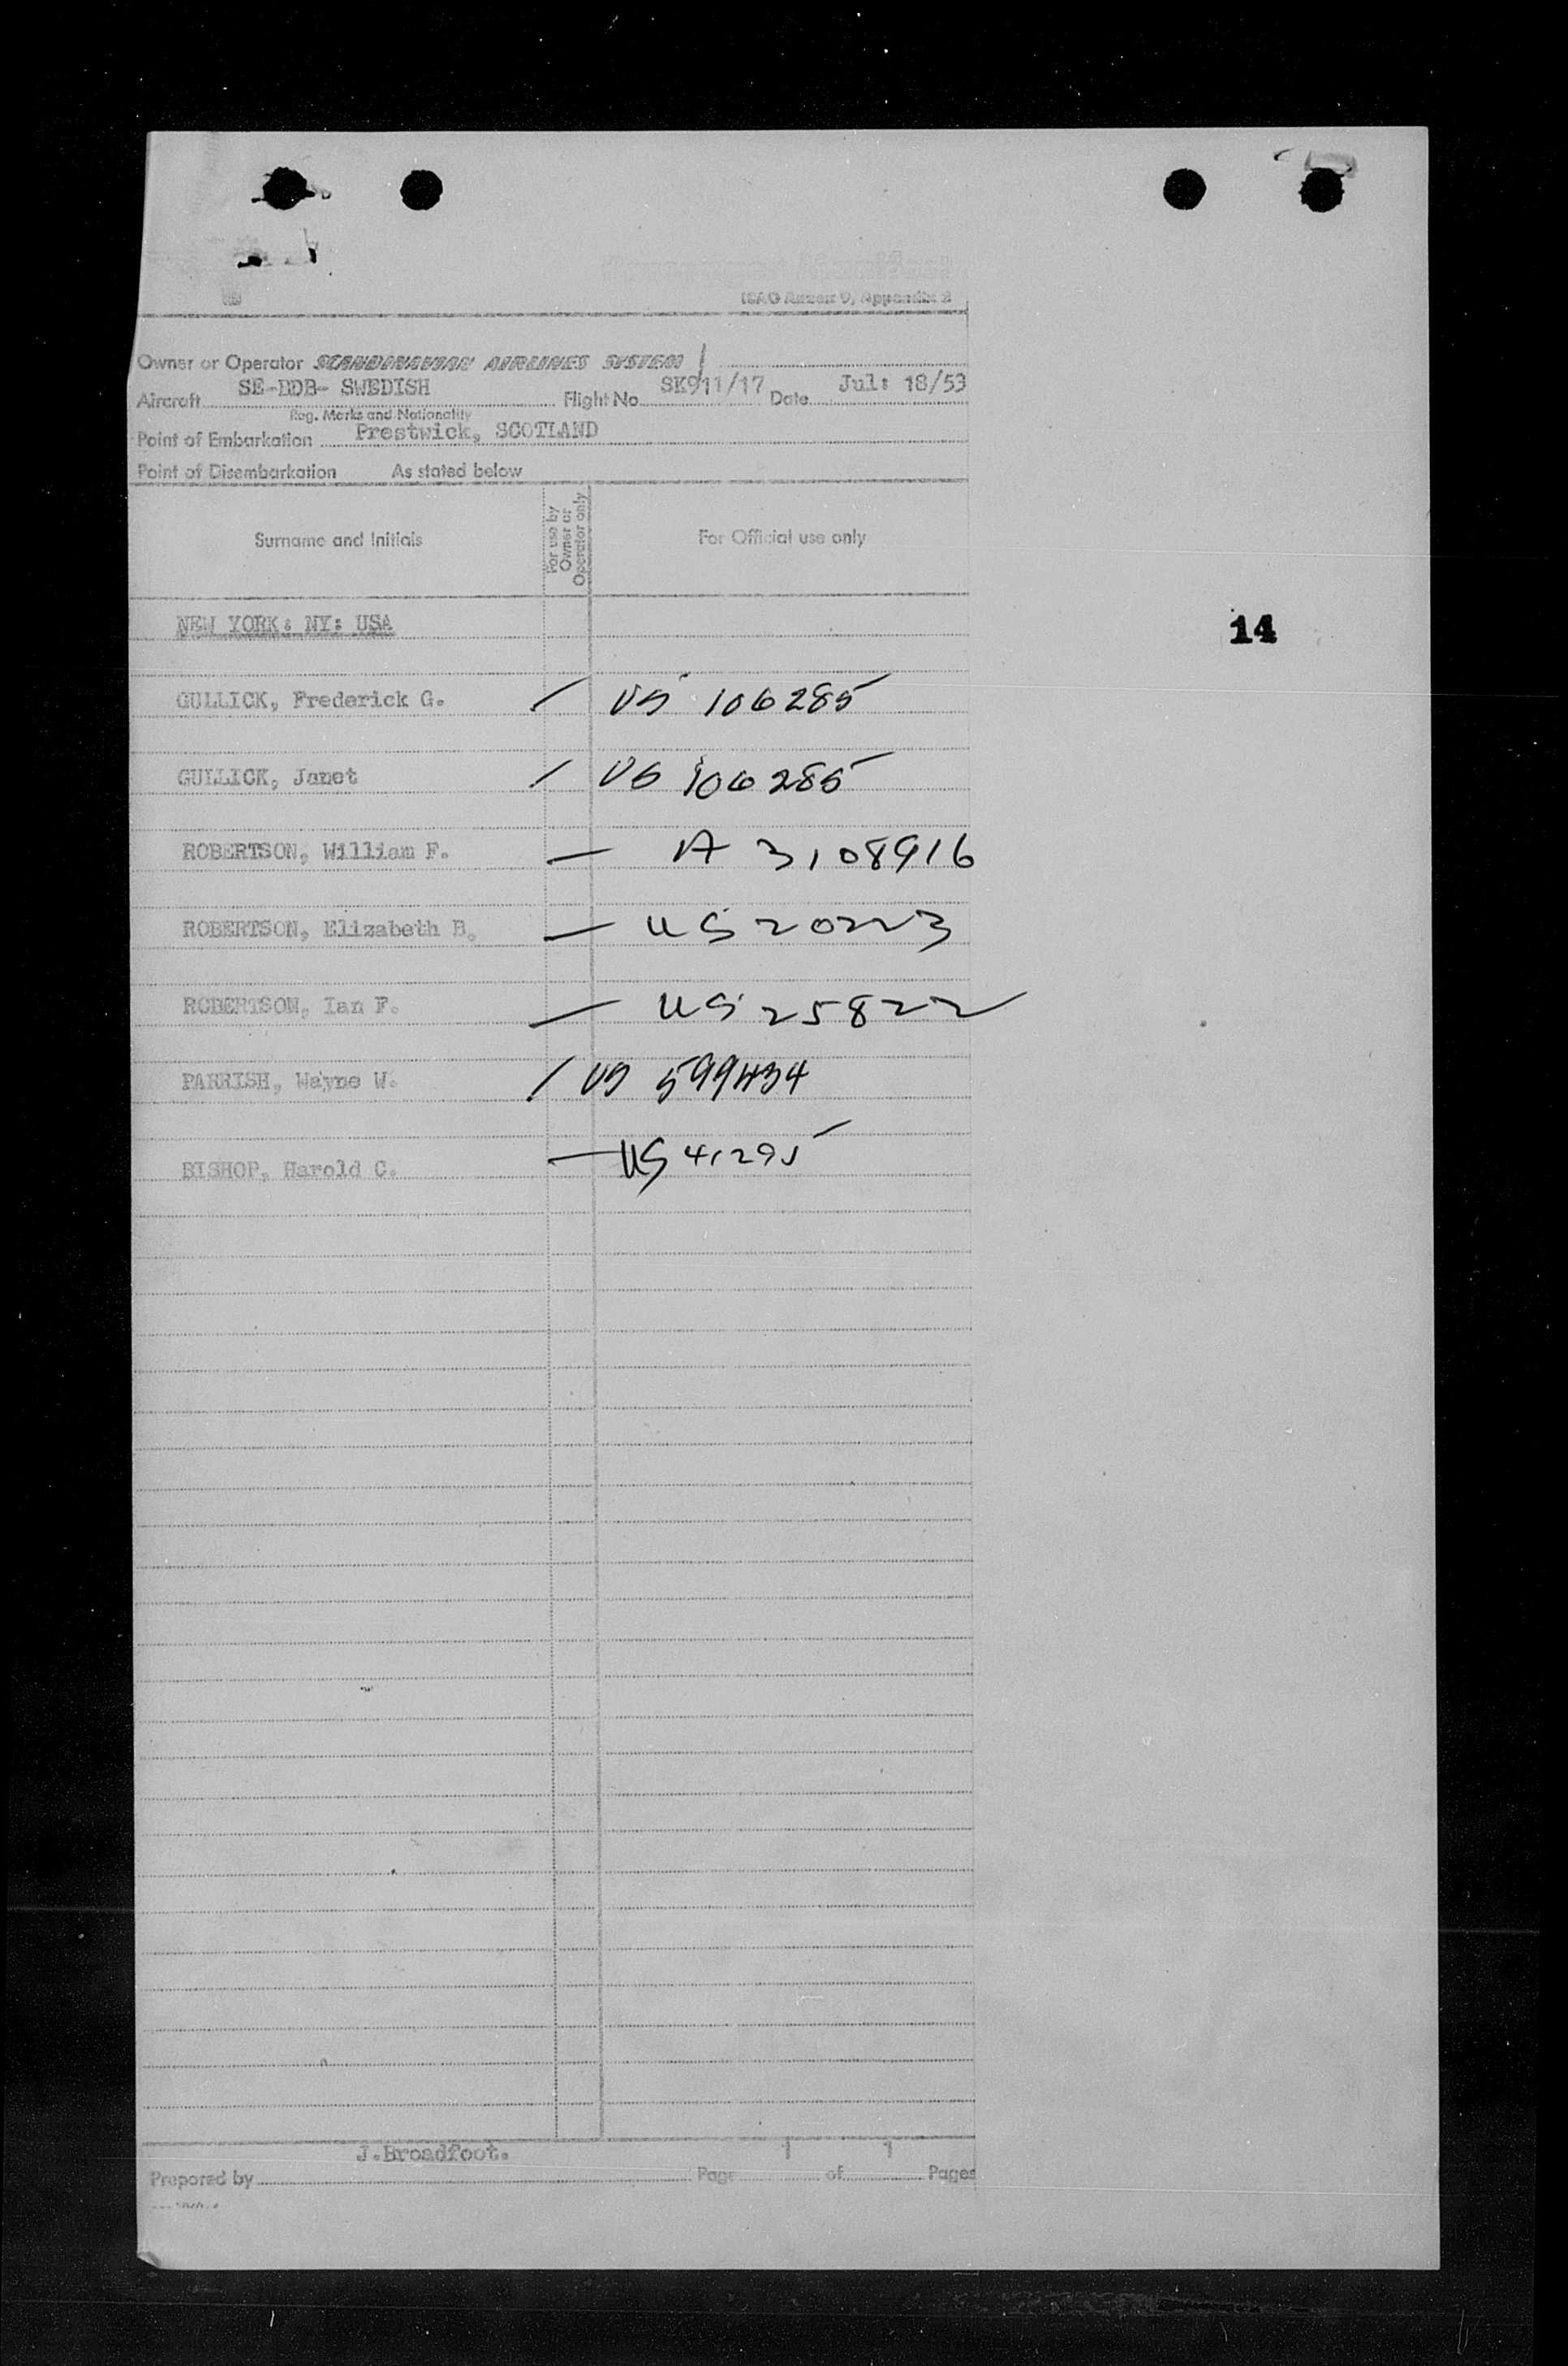 ICAO Annex 9, Appendix 2
Owner or Operator SCANDINAVIAN AIRLINES SYSTEM
SE-BDB- SWEDISH SK911/17 Jul: 18/53
Aircraft Flight No. Date
Reg. Marks and Nationality
Point of Embarkation Prestwick, SCOTLAND
Point of Disembarkation As stated below
Surname and Initials For use by Owner or Operator only For Official use only
NEW YORK: NY: USA
14
GULLICK, Frederick G. / US 106285
GULLICK, Janet / US 106285
ROBERTSON, William F. — A 3108916
ROBERTSON, Elizabeth B. — US 20223
ROBERTSON, Ian F. — US 25822
PARRISH, Wayne W. / US 599434
BISHOP, Harold C. — US 41295
J.Broadfoot. 1 1
Prepared by Page of Pages